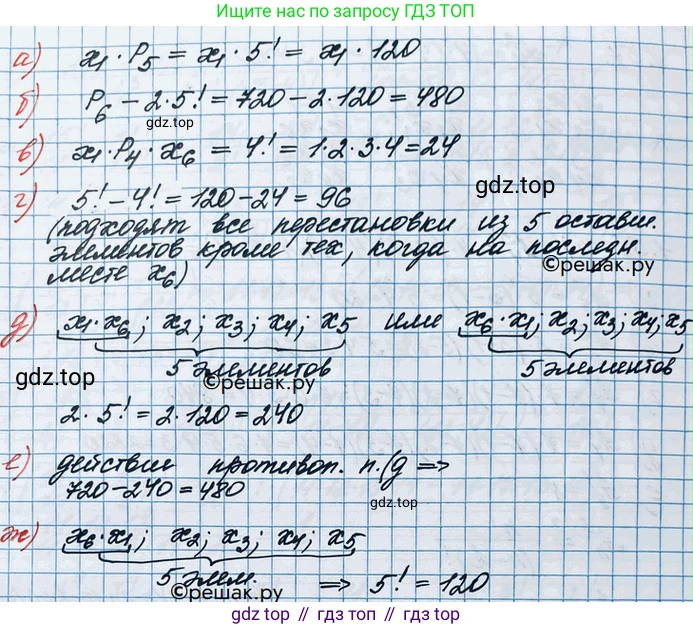 Ищите нас по запросу ГДЗ ТОП
а) x₁ · P₅ = x₁ · 5! = x₁ · 120
б) P₆ − 2·5! = 720 − 2·120 = 480
gdz.top
в) x₁·P₄·x₆ = 4! = 1·2·3·4=24
г) 5! − 4! = 120 − 24 = 96
gdz.top
(подходят все перестановки из 5 оставш.
элементов кроме тех, когда на последн.
месте x₆)
©решак.ру
д) x₁·x₆; x₂; x₃; x₄; x₅ или x₆·x₁; x₂; x₃; x₄; x₅
5 элементов 5 элементов
gdz.top
©решак.ру
2·5! = 2·120 = 240
е) действие противоп. п.(д ⇒
720−240 = 480
gdz.top
ж) x₆·x₁; x₂; x₃; x₄; x₅
5 элем. ⇒ 5! = 120
©решак.ру
gdz.top // гдз.топ // gdz.top